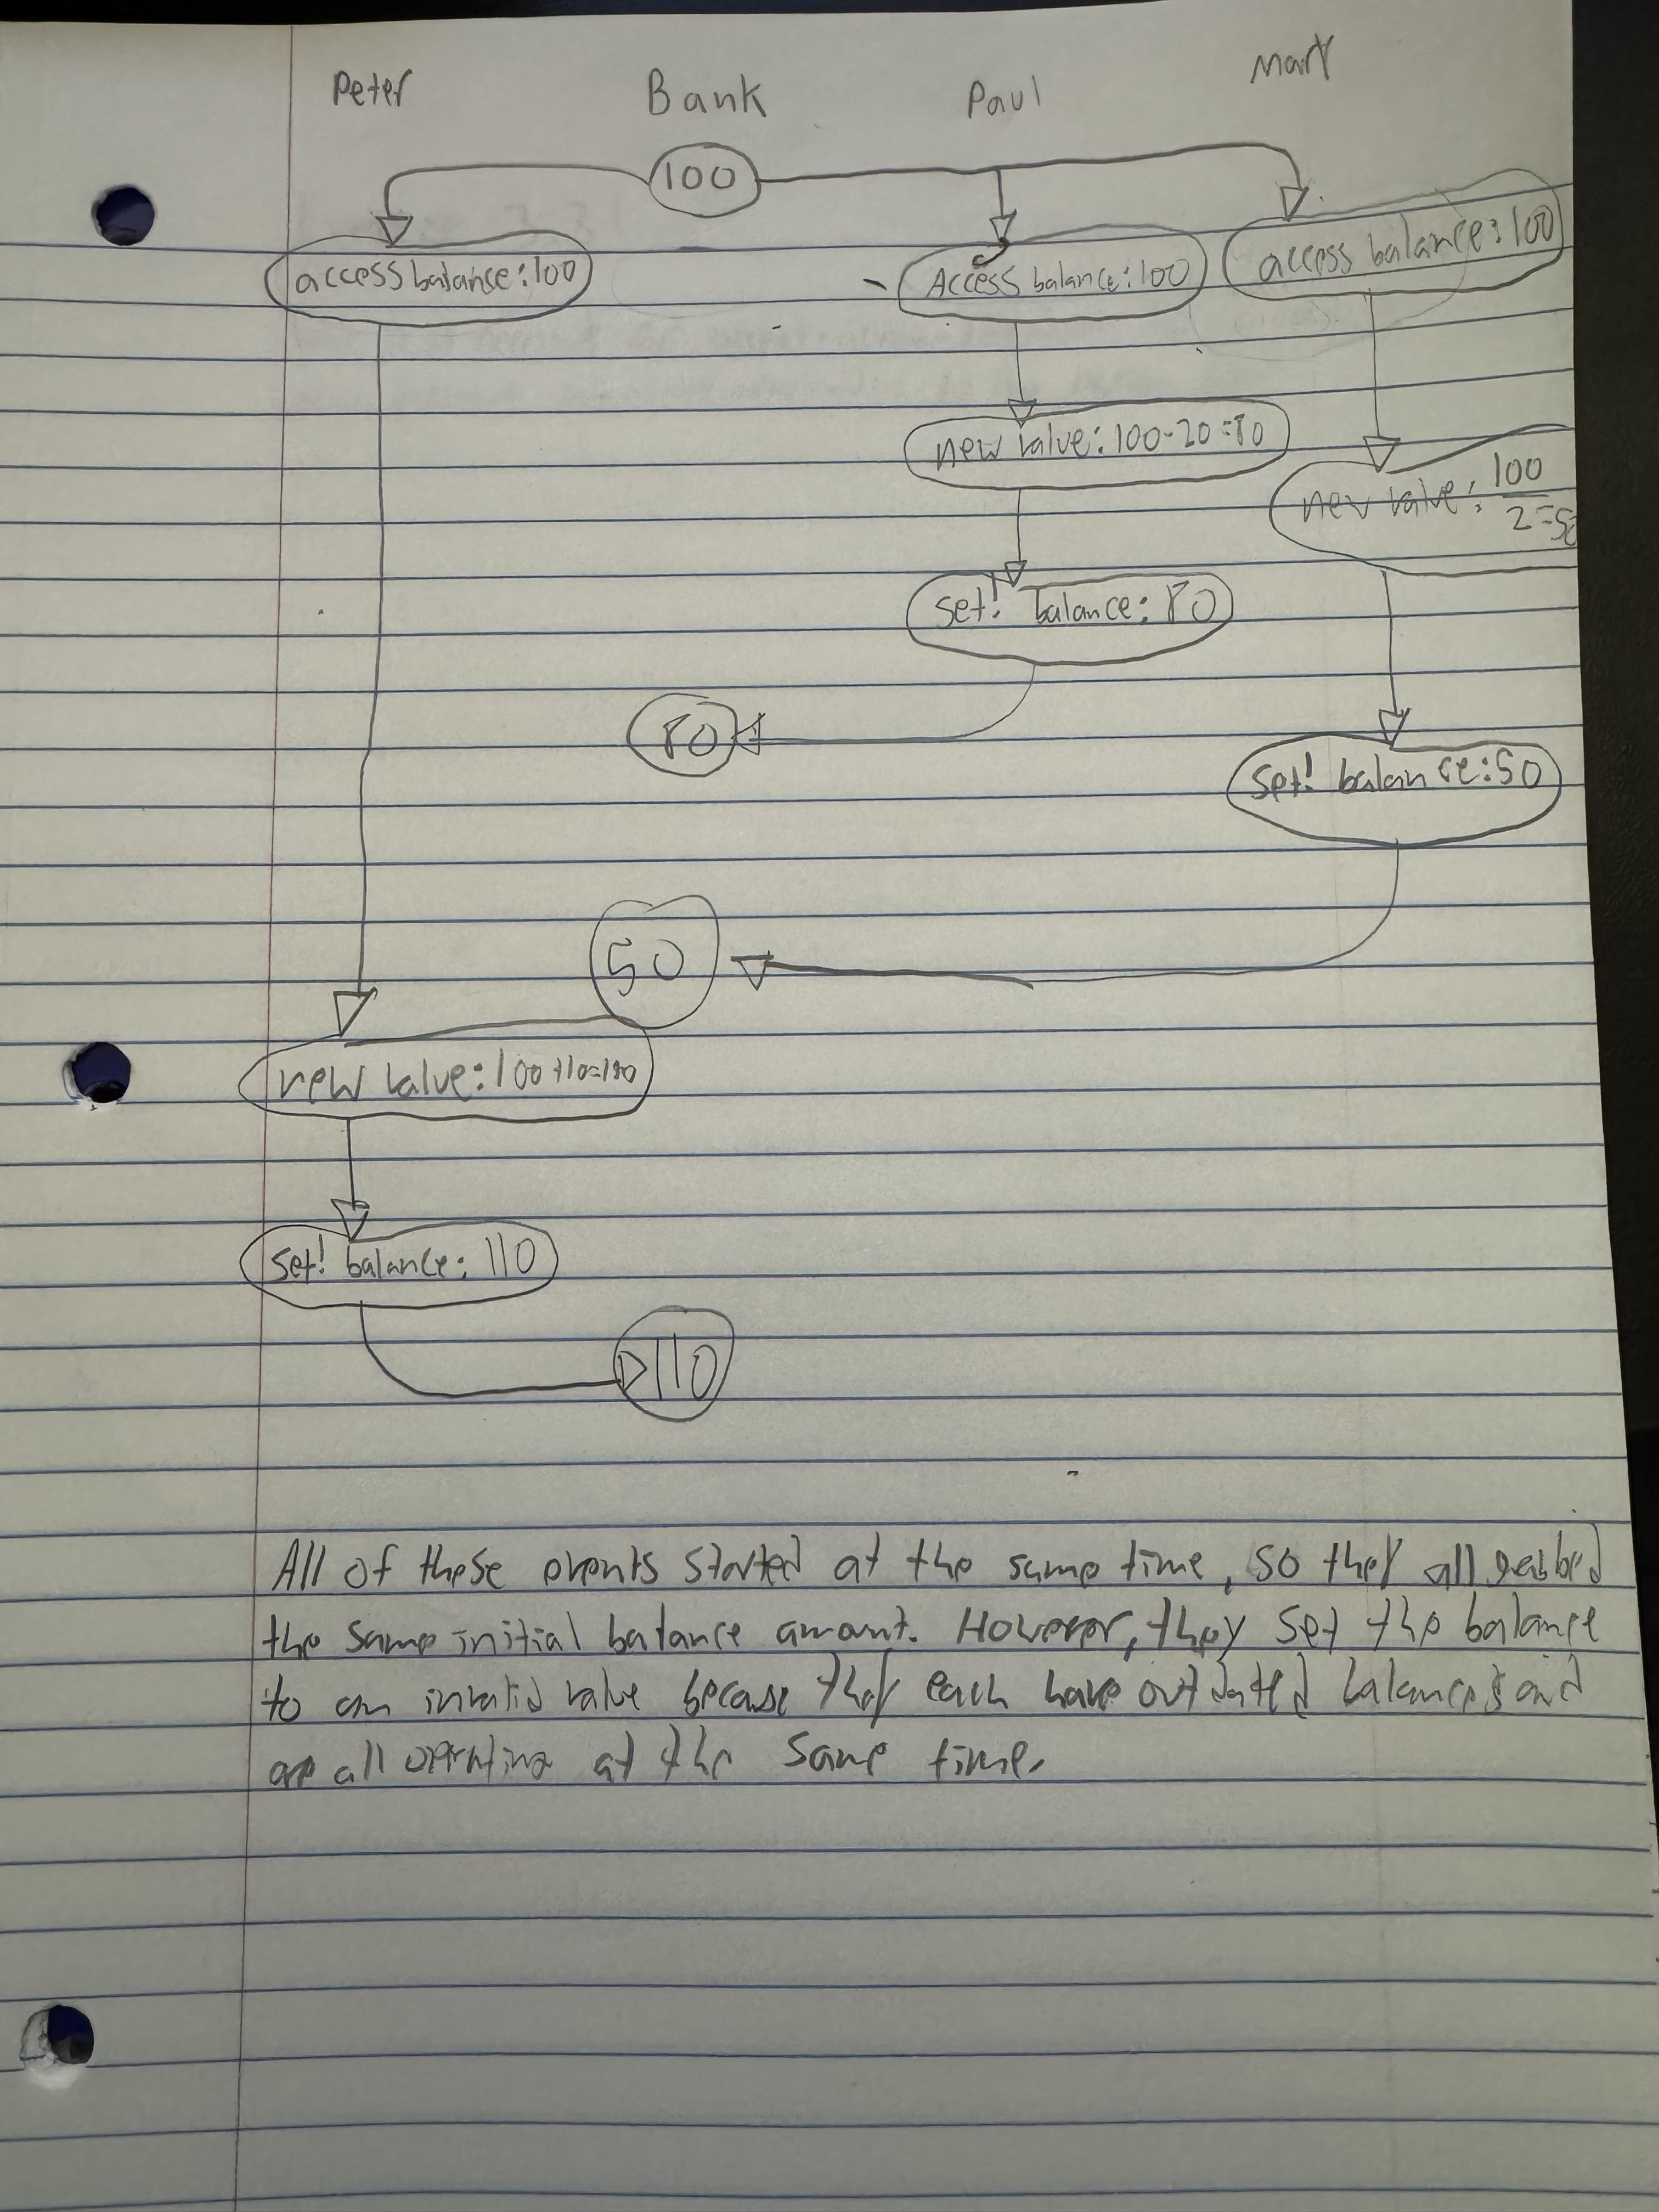 Peter Bank Paul Mary
100
access balance:100 Access balance:100 access balance:100
new value: 100-20=80
new value: 100/2=50
set! balance: 80
80
set! balance:50
50
new value: 100+10=110
set! balance: 110
110
All of these events started at the same time, so they all grabbed
the same initial balance amount. However, they set the balance
to an invalid value because they each have outdated balances and
are all operating at the same time.